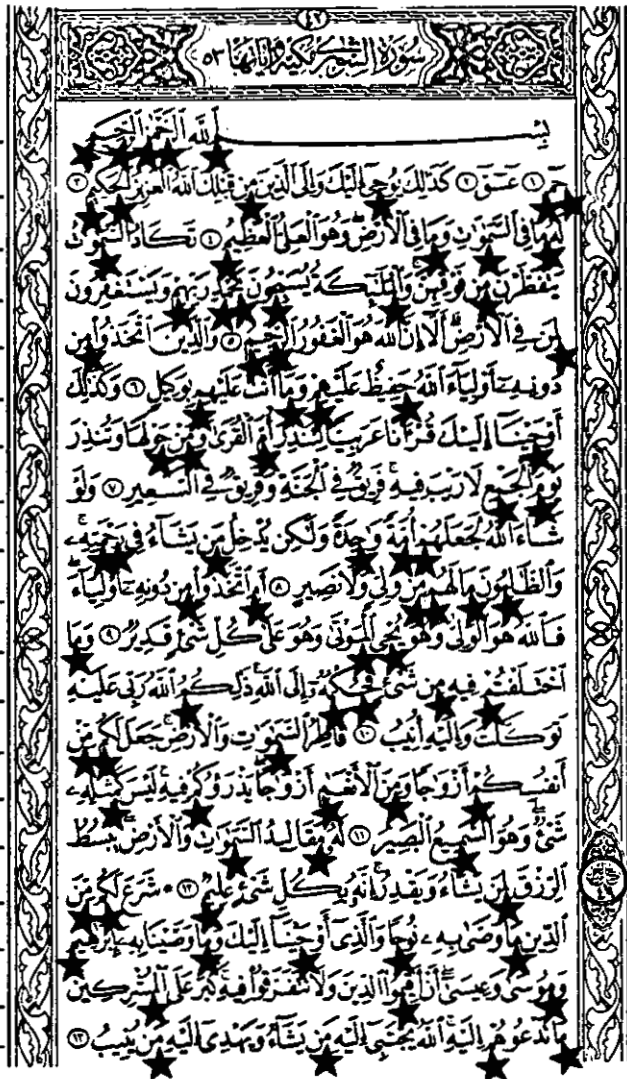 ٤٢
سُورَةُ الشُّورَىٰ مَكِّيَّة وَآيَاتُهَا ٥٣
بِسْمِ ٱللَّهِ ٱلرَّحْمَٰنِ ٱلرَّحِيمِ
حمٓ ١ عٓسٓقٓ ٢ كَذَٰلِكَ يُوحِىٓ إِلَيْكَ وَإِلَى ٱلَّذِينَ مِن قَبْلِكَ ٱللَّهُ ٱلْعَزِيزُ ٱلْحَكِيمُ ٣
لَهُۥ مَا فِى ٱلسَّمَٰوَٰتِ وَمَا فِى ٱلْأَرْضِ ۖ وَهُوَ ٱلْعَلِىُّ ٱلْعَظِيمُ ٤ تَكَادُ ٱلسَّمَٰوَٰتُ
يَتَفَطَّرْنَ مِن فَوْقِهِنَّ ۚ وَٱلْمَلَٰٓئِكَةُ يُسَبِّحُونَ بِحَمْدِ رَبِّهِمْ وَيَسْتَغْفِرُونَ
لِمَن فِى ٱلْأَرْضِ ۗ أَلَآ إِنَّ ٱللَّهَ هُوَ ٱلْغَفُورُ ٱلرَّحِيمُ ٥ وَٱلَّذِينَ ٱتَّخَذُوا۟ مِن
دُونِهِۦٓ أَوْلِيَآءَ ٱللَّهُ حَفِيظٌ عَلَيْهِمْ وَمَآ أَنتَ عَلَيْهِم بِوَكِيلٍ ٦ وَكَذَٰلِكَ
أَوْحَيْنَآ إِلَيْكَ قُرْءَانًا عَرَبِيًّا لِّتُنذِرَ أُمَّ ٱلْقُرَىٰ وَمَنْ حَوْلَهَا وَتُنذِرَ
يَوْمَ ٱلْجَمْعِ لَا رَيْبَ فِيهِ ۚ فَرِيقٌ فِى ٱلْجَنَّةِ وَفَرِيقٌ فِى ٱلسَّعِيرِ ٧ وَلَوْ
شَآءَ ٱللَّهُ لَجَعَلَهُمْ أُمَّةً وَٰحِدَةً وَلَٰكِن يُدْخِلُ مَن يَشَآءُ فِى رَحْمَتِهِۦ ۚ
وَٱلظَّٰلِمُونَ مَا لَهُم مِّن وَلِىٍّ وَلَا نَصِيرٍ ٨ أَمِ ٱتَّخَذُوا۟ مِن دُونِهِۦٓ أَوْلِيَآءَ ۖ
فَٱللَّهُ هُوَ ٱلْوَلِىُّ وَهُوَ يُحْىِ ٱلْمَوْتَىٰ وَهُوَ عَلَىٰ كُلِّ شَىْءٍ قَدِيرٌ ٩ وَمَا
ٱخْتَلَفْتُمْ فِيهِ مِن شَىْءٍ فَحُكْمُهُۥٓ إِلَى ٱللَّهِ ۚ ذَٰلِكُمُ ٱللَّهُ رَبِّى عَلَيْهِ
تَوَكَّلْتُ وَإِلَيْهِ أُنِيبُ ١٠ فَاطِرُ ٱلسَّمَٰوَٰتِ وَٱلْأَرْضِ ۚ جَعَلَ لَكُم مِّنْ
أَنفُسِكُمْ أَزْوَٰجًا وَمِنَ ٱلْأَنْعَٰمِ أَزْوَٰجًا ۖ يَذْرَؤُكُمْ فِيهِ ۚ لَيْسَ كَمِثْلِهِۦ
شَىْءٌ ۖ وَهُوَ ٱلسَّمِيعُ ٱلْبَصِيرُ ١١ لَهُۥ مَقَالِيدُ ٱلسَّمَٰوَٰتِ وَٱلْأَرْضِ ۖ يَبْسُطُ
ٱلرِّزْقَ لِمَن يَشَآءُ وَيَقْدِرُ ۚ إِنَّهُۥ بِكُلِّ شَىْءٍ عَلِيمٌ ١٢ ۞ شَرَعَ لَكُم مِّنَ
ٱلدِّينِ مَا وَصَّىٰ بِهِۦ نُوحًا وَٱلَّذِىٓ أَوْحَيْنَآ إِلَيْكَ وَمَا وَصَّيْنَا بِهِۦٓ إِبْرَٰهِيمَ
وَمُوسَىٰ وَعِيسَىٰٓ ۖ أَنْ أَقِيمُوا۟ ٱلدِّينَ وَلَا تَتَفَرَّقُوا۟ فِيهِ ۚ كَبُرَ عَلَى ٱلْمُشْرِكِينَ
مَا تَدْعُوهُمْ إِلَيْهِ ۚ ٱللَّهُ يَجْتَبِىٓ إِلَيْهِ مَن يَشَآءُ وَيَهْدِىٓ إِلَيْهِ مَن يُنِيبُ ١٣